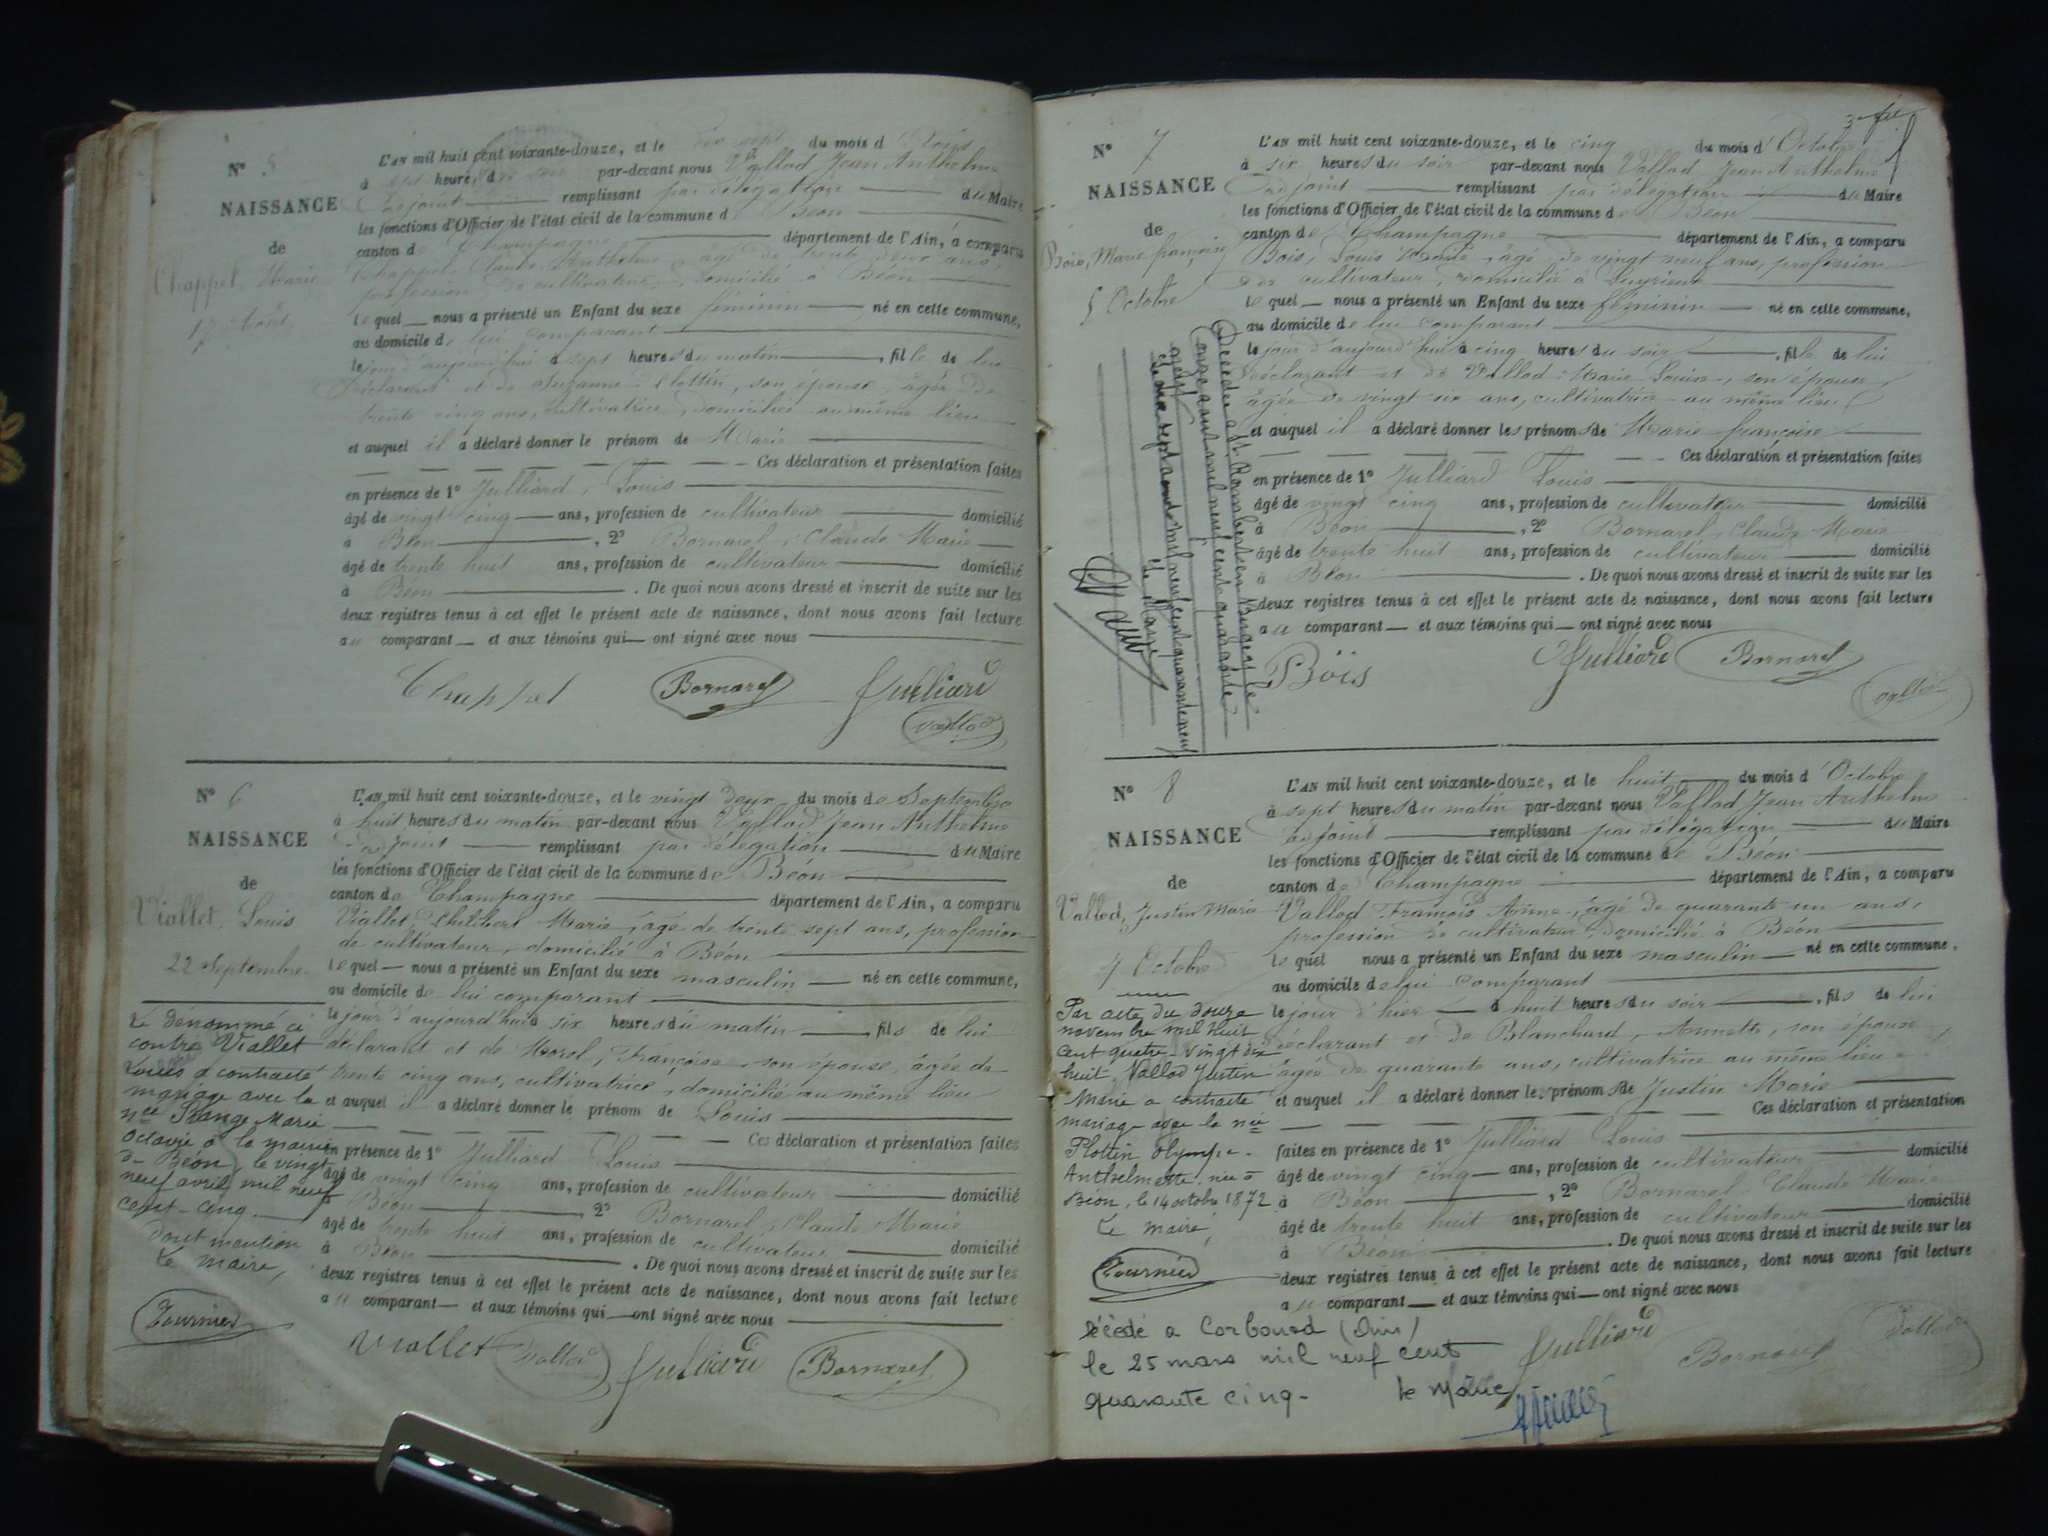 N° 5
NAISSANCE
de
Chappel, Marie
17 Août
L'AN mil huit cent soixante-douze, et le dix sept du mois d'Août
à sept heures du soir par-devant nous Vallod Jean Anthelme
adjoint remplissant par délégation du Maire
les fonctions d'Officier de l'état civil de la commune de Béon
canton de Champagne département de l'Ain, a comparu
Chappel Claude Anthelme, âgé de trente deux ans,
profession de cultivateur, domicilié à Béon
lequel nous a présenté un Enfant du sexe féminin né en cette commune,
au domicile de lui comparant
le jour d'aujourd'hui à sept heures du matin, fille de lui
déclarant et de Suzanne Plottin, son épouse, âgée de
trente cinq ans, cultivatrice, domiciliée au même lieu
et auquel il a déclaré donner le prénom de Marie
Ces déclaration et présentation faites
en présence de 1° Julliard, Louis
âgé de vingt cinq ans, profession de cultivateur domicilié
à Béon, 2° Bornarel, Claude Marie
âgé de trente huit ans, profession de cultivateur domicilié
à Béon. De quoi nous avons dressé et inscrit de suite sur les
deux registres tenus à cet effet le présent acte de naissance, dont nous avons fait lecture
au comparant et aux témoins qui ont signé avec nous
Chappel Bornarel Julliard
Vallod
N° 6
NAISSANCE
de
Viallet, Louis
22 Septembre
Le dénommé ci
contre Viallet
Louis a contracté
mariage avec la
née Pange Marie
Octavie à la mairie
de Béon, le vingt
neuf avril mil neuf
cent cinq.
Dont mention
Le maire,
Fournier
L'AN mil huit cent soixante-douze, et le vingt deux du mois de Septembre
à huit heures du matin par-devant nous Vallod Jean Anthelme
adjoint remplissant par délégation du Maire
les fonctions d'Officier de l'état civil de la commune de Béon
canton de Champagne département de l'Ain, a comparu
Viallet, Philibert Marie, âgé de trente sept ans, profession
de cultivateur, domicilié à Béon
lequel nous a présenté un Enfant du sexe masculin né en cette commune,
au domicile de lui comparant
le jour d'aujourd'hui à six heures du matin, fils de lui
déclarant et de Morel, Françoise, son épouse, âgée de
trente cinq ans, cultivatrice, domiciliée au même lieu
et auquel il a déclaré donner le prénom de Louis
Ces déclaration et présentation faites
en présence de 1° Julliard Louis
âgé de vingt cinq ans, profession de cultivateur domicilié
à Béon 2° Bornarel, Claude Marie
âgé de trente huit ans, profession de cultivateur domicilié
à Béon. De quoi nous avons dressé et inscrit de suite sur les
deux registres tenus à cet effet le présent acte de naissance, dont nous avons fait lecture
au comparant et aux témoins qui ont signé avec nous
Viallet Vallod Julliard Bornarel
N° 7
NAISSANCE
de
Bois, Marie françoise
5 Octobre
Décédée à St Rambert en Bugey le
onze août mil neuf cent quarante
neuf
Le dix sept août mil neuf cent quarante neuf
Le Maire
L'AN mil huit cent soixante-douze, et le cinq du mois d'Octobre
à six heures du soir par-devant nous Vallod Jean Anthelme
adjoint remplissant par délégation du Maire
les fonctions d'Officier de l'état civil de la commune de Béon
canton de Champagne département de l'Ain, a comparu
Bois, Louis, âgé de vingt neuf ans, profession
de cultivateur, domicilié à Luyrieux
lequel nous a présenté un Enfant du sexe féminin né en cette commune,
au domicile de lui comparant
le jour d'aujourd'hui à cinq heures du soir, fille de lui
déclarant et de Vallod Marie Louise, son épouse,
âgée de vingt six ans, cultivatrice au même lieu
et auquel il a déclaré donner les prénoms de Marie françoise
Ces déclaration et présentation faites
en présence de 1° Julliard Louis
âgé de vingt cinq ans, profession de cultivateur domicilié
à Béon, 2° Bornarel, Claude Marie
âgé de trente huit ans, profession de cultivateur domicilié
à Béon. De quoi nous avons dressé et inscrit de suite sur les
deux registres tenus à cet effet le présent acte de naissance, dont nous avons fait lecture
au comparant et aux témoins qui ont signé avec nous
Böis Julliard Bornarel
Vallod
N° 8
NAISSANCE
de
Vallod, Justin Marie
7 Octobre
Par acte du douze
novembre mil huit
cent quatre-vingt dix
huit, Vallod Justin
Marie a contracté
mariage avec la née
Plottin Olympe-
Anthelmette, née à
Béon, le 14 octobre 1872
Le maire,
Fournier
L'AN mil huit cent soixante-douze, et le huit du mois d'Octobre
à sept heures du matin par-devant nous Vallod Jean Anthelme
adjoint remplissant par délégation du Maire
les fonctions d'Officier de l'état civil de la commune de Béon
canton de Champagne département de l'Ain, a comparu
Vallod François Aimé, âgé de quarante un ans,
profession de cultivateur, domicilié à Béon
lequel nous a présenté un Enfant du sexe masculin né en cette commune,
au domicile de lui comparant
le jour d'hier à huit heures du soir, fils de lui
déclarant et de Blanchard, Annette, son épouse,
âgée de quarante ans, cultivatrice au même lieu
et auquel il a déclaré donner les prénoms de Justin Marie
Ces déclaration et présentation
faites en présence de 1° Julliard Louis
âgé de vingt cinq ans, profession de cultivateur domicilié
à Béon, 2° Bornarel, Claude Marie
âgé de trente huit ans, profession de cultivateur domicilié
à Béon. De quoi nous avons dressé et inscrit de suite sur les
deux registres tenus à cet effet le présent acte de naissance, dont nous avons fait lecture
au comparant et aux témoins qui ont signé avec nous
Julliard Bornarel Vallod
Décédé à Corbonod (Ain)
le 25 mars mil neuf cent
quarante cinq- le Maire